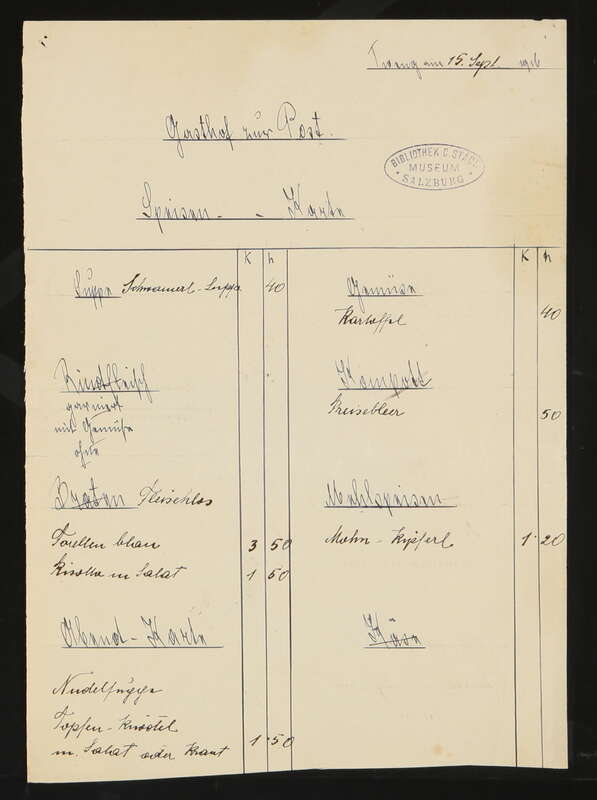 Tweng am 15. Sept. 1916
Gasthof zur Post.
BIBLIOTHEK D. STÄDT.
MUSEUM
SALZBURG
Speisen - Karte
K h
Suppe Schwammerl-Suppe 40
Rindfleisch
garniert
mit Gemüse
ohne
Braten Fleischlos
Forellen blau 3 50
Risotto m Salat 1 50
Abend-Karte
Nudelsuppe
Topfen-Knödel
m. Salat oder Kraut 1 50
K h
Gemüse
Kartoffel 40
Kompott
Preiselbeer 50
Mehlspeisen
Mohn-Kipferl 1 20
Käse